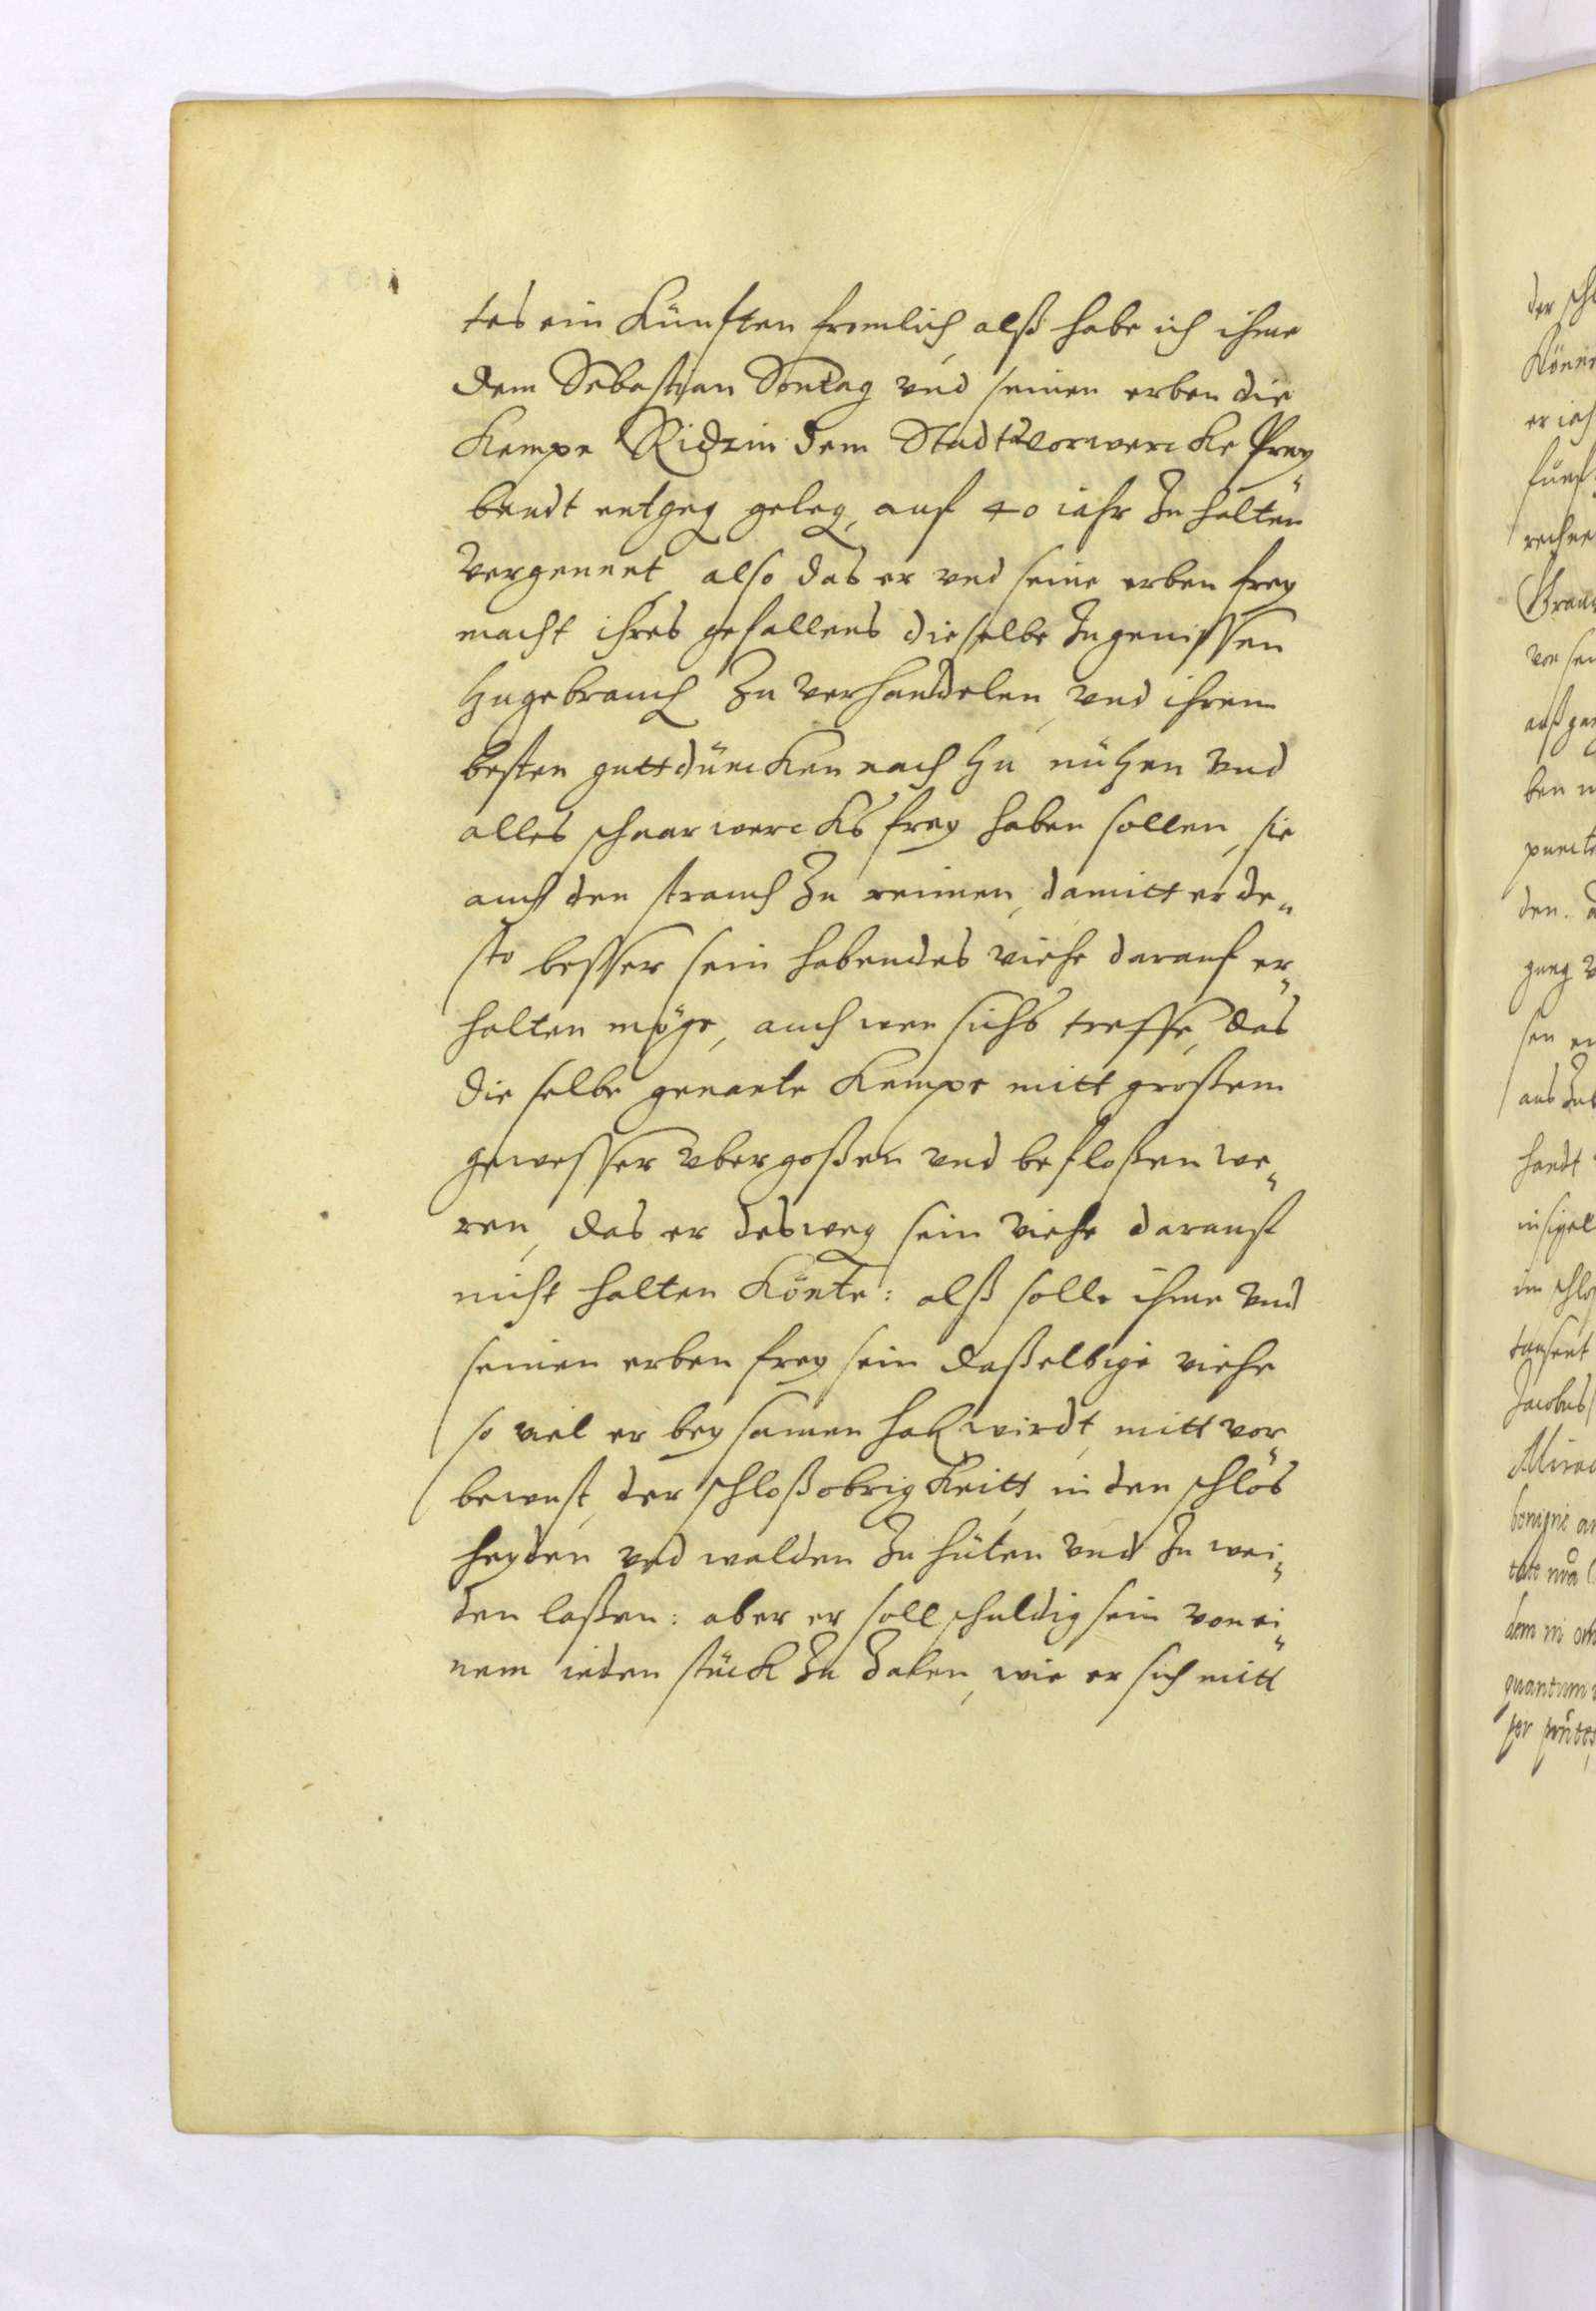 tes ein Künften fromlich alß habe ich ihme
dem Sebastyan Sontag und seinen erben die
Kempe Ridzin dem Stadtvorwercke Prey¨
bandt entgeg geleg, auf 40 iahr Zu halten
Vergennet also das er vnd seine erben frey
macht ihres gefallens dieselbe Zu genissen
Zu gebrauch Zu verhandelen vnd ihrem
besten guttdüncken nach Zu nützen vnd
alles scharwercks frey haben sollen, sie
auch den strauch Zu reimen, damitt er de¨
sto besser sein habendes viehe darauf er¨
halten möge, auch wen sichs treffe, das
die selbe genante Kempe mitt großem
gewesser vbergoßen vnd befloßen we¨
ren, das er desweg sein viehe darauf
nicht halten Könte: alß solle ihme vnd
seinen erben frey sein daßelbige viehe
so viel er bey samen hab wirdt mitt vor¨
bewust, der schloßobrigkeitt, in den schlos
heyden vnd walden Zu hüten vnd Zu wei¨
den laßen: aber er soll schuldig sein von ei¨
nem ieden stück Zu Zalen, wie er sich mitt
der
Könn
er ich
fünf
rechne
von sei
auß ge
ben
den.
gung
sen
aus
handt
insigel
im schlo
tausent
Jacobus
quantum
per